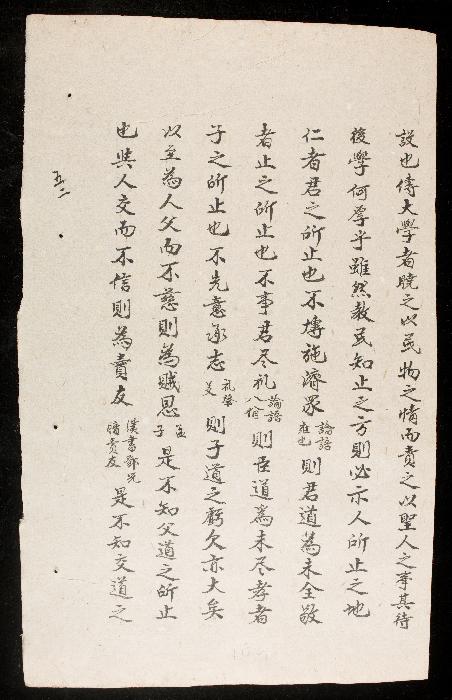 說也傳大學者曉之以民物之情而責之以聖人之事其待
後學何厚乎雖然教民知止之方則必示人所止之地
仁者君之所止也不博施濟眾論語雍也則君道為未全敬
者止之所止也不事君尽礼論語八佾則臣道為未尽孝者
子之所止也不先意承志礼祭義則子道之虧欠亦大矣
以至為人父而不慈則為賊恩孟子是不知父道之所止
也與人交而不信則為賣友漢書酈況賣友是不知交道之
五二